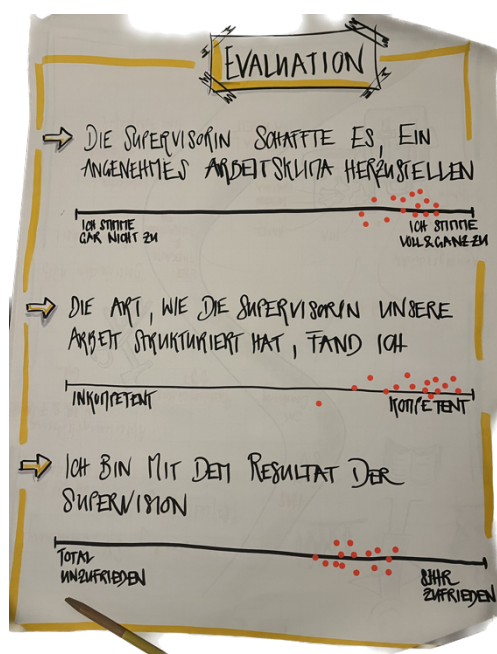 EVALUATION
DIE SUPERVISORIN SCHAFFTE ES, EIN
ANGENEHMES ARBEITSKLIMA HERZUSTELLEN
ICH STIMME
GAR NICHT ZU
ICH STIMME
VOLL & GANZ ZU
DIE ART, WIE DIE SUPERVISORIN UNSERE
ARBEIT STRUKTURIERT HAT, FAND ICH
INKOMPETENT
KOMPETENT
ICH BIN MIT DEM RESULTAT DER
SUPERVISION
TOTAL
UNZUFRIEDEN
SEHR
ZUFRIEDEN